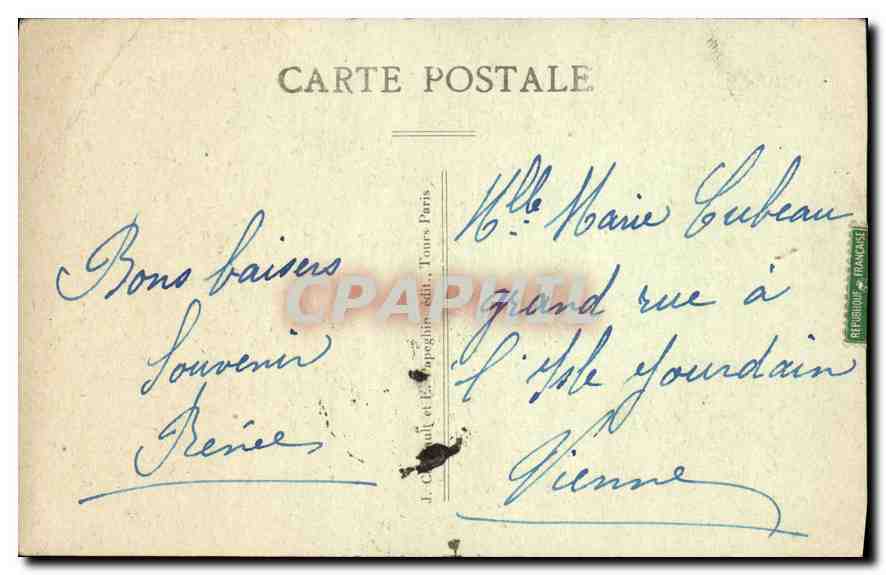 CARTE POSTALE
Bons baisers
Souvenir
Renée
J. C ault et E. Papeghin édit., Tours Paris
Mlle Marie Cubeau
grand rue à
l'Isle Jourdain
Vienne
REPUBLIQUE FRANCAISE
CPAPHIL